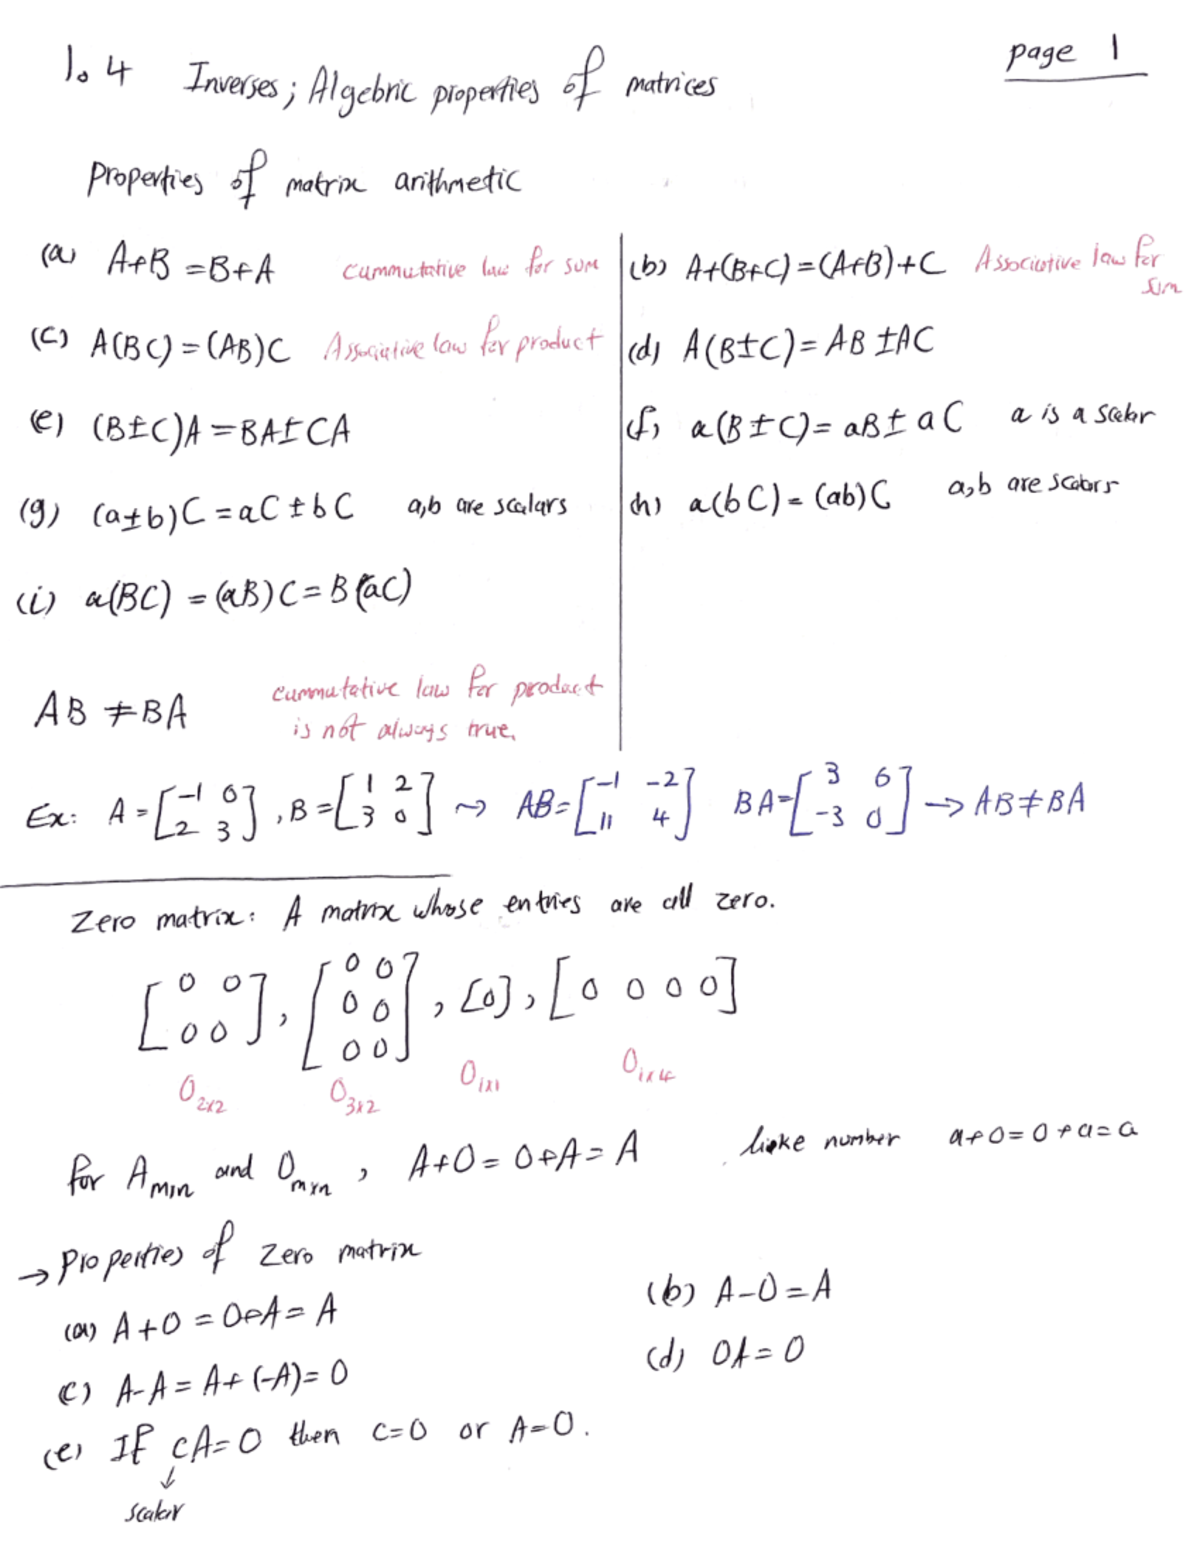 1.4 Inverses; Algebric properties of matrices
page 1
Properties of matrix arithmetic
(a) A+B = B+A cummutative law for sum
(b) A+(B+C) = (A+B)+C Associative law for sum
(c) A(BC) = (AB)C Associative law for product
(d) A(B±C) = AB ± AC
(e) (B±C)A = BA ± CA
(f) a(B±C) = aB ± aC a is a scalar
(g) (a±b)C = aC ± bC a,b are scalars
(h) a(bC) = (ab)C a,b are scalars
(i) a(BC) = (aB)C = B(aC)
AB ≠ BA cummutative law for product
is not always true.
Ex: A = [-1 0; 2 3], B = [1 2; 3 0] ⇝ AB = [-1 -2; 11 4] BA = [3 6; -3 0] → AB ≠ BA
Zero matrix: A matrix whose entries are all zero.
[0 0; 0 0], [0 0; 0 0; 0 0], [0], [0 0 0 0]
O2x2 O3x2 O1x1 O1x4
for Amxn and Omxn, A+O = O+A = A like number a+0=0+a=a
→ Properties of zero matrix
(a) A+O = O+A = A
(b) A-O = A
(c) A-A = A+(-A) = O
(d) OA = O
(e) If cA=O then c=0 or A=O.
↓
scalar